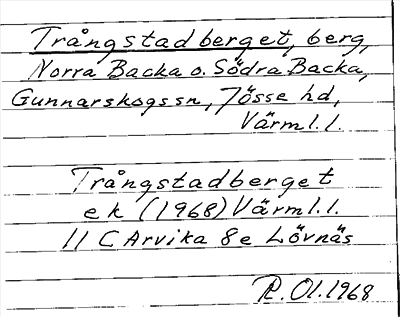 Trångstadberget, berg,
Norra Backa o. Södra Backa,
Gunnarskogssn, Jösse hd,
Värml. l.
Trångstadberget
ek (1968) Värml. l.
11 C Arvika 8e Lövnäs
R. Ol. 1968